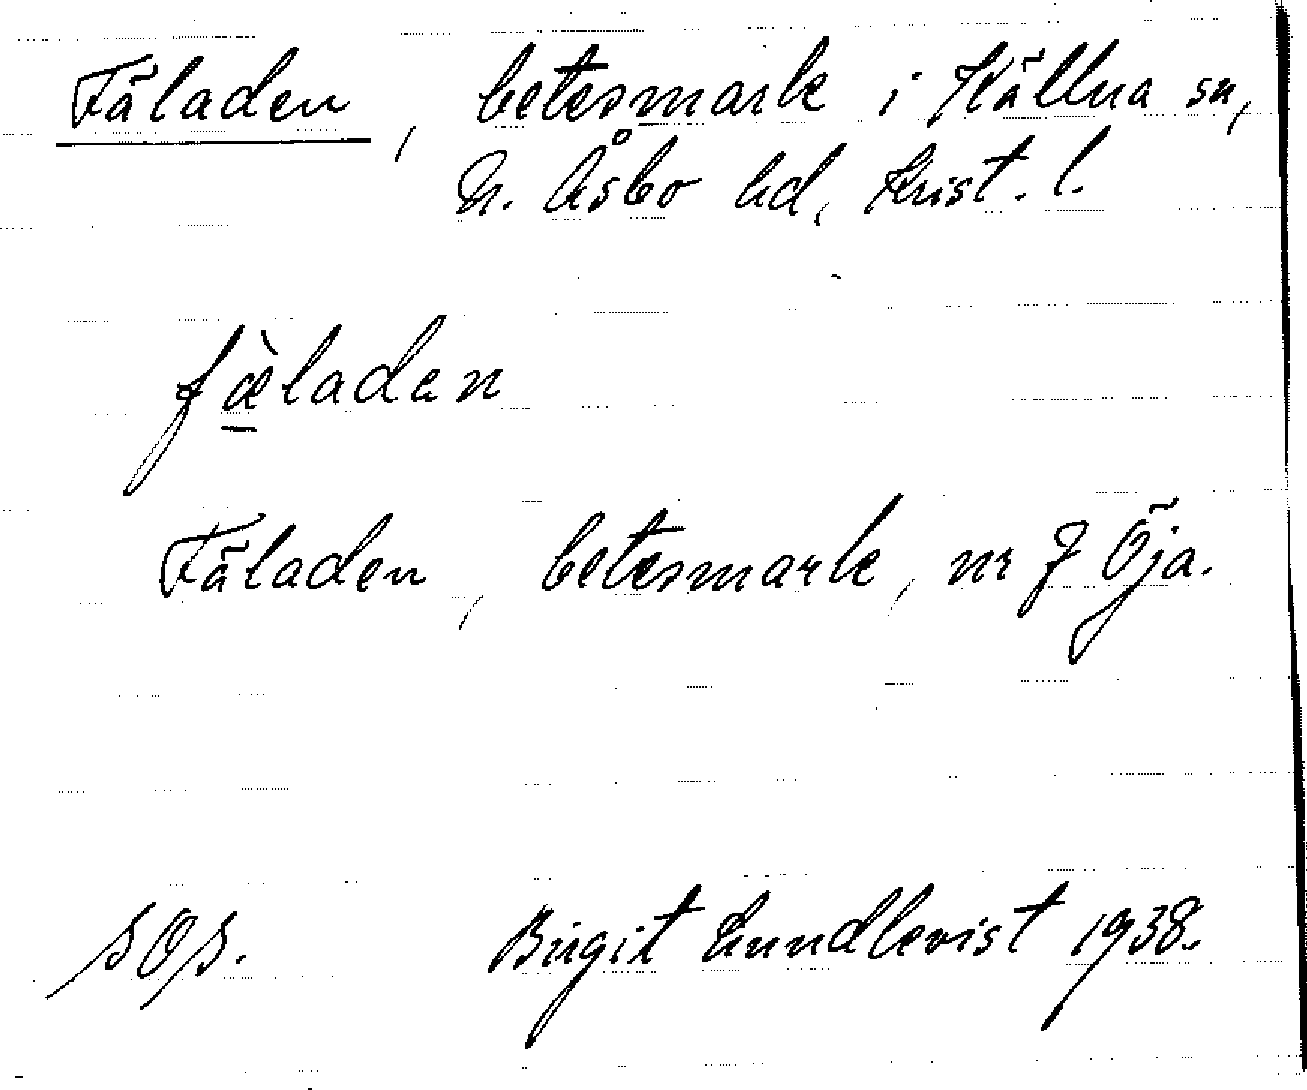 Fäladen, betesmark i Källna sn,
N. Åsbo hd, Krist. l.
fæ̀laden
Fäladen, betesmark, nr 7 Öja.
Birgit Lundkvist 1938.